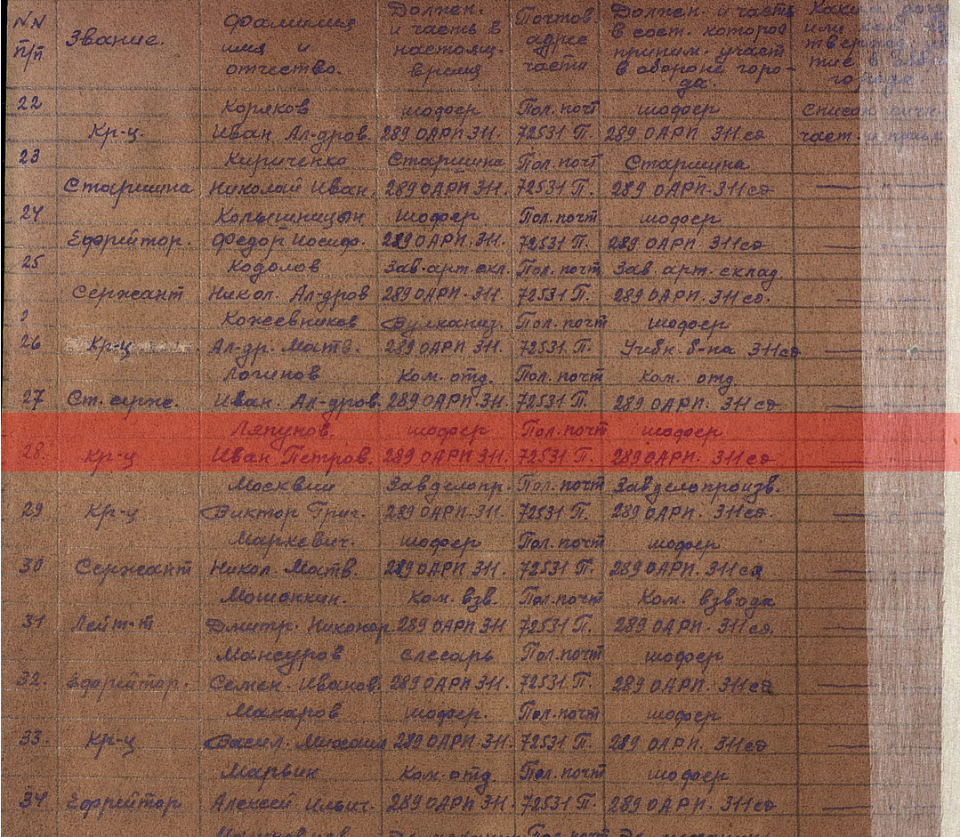 NN п/п Звание. Фамилия имя и отчество. Должен. и часть в настоящ. время Почтов. адрес части Должен. и часть в сост. которой приним. участ в обороне горо-да.
22 Коряков шофер Пол.почт шофер
Кр-ц. Иван Ал-дров. 289 ОАРП 311. 72531 П. 289 ОАРП. 311 сд
23 Кириченко Старшина Пол.почт Старшина
Старшина Николай Иван. 289 ОАРП 311. 72531 П. 289 ОАРП. 311сд
24 шофер Пол.почт шофер
Ефрейтор. Федор Иосиф. 289 ОАРП. 311. 72531 П. 289 ОАРП. 311сд
25 Кодолов Зав.арт.скл. Пол.почт Зав арт. склад.
Сержант Никол. Ал-дров 289 ОАРП. 311. 72531 П. 289 ОАРП. 311сд.
Кожевников Вулканиз. Пол.почт шофер
26 Кр-ц Ал-др. Матв. 289 ОАРП 311. 72531 П. Учебн. б-на 311сд
Логинов Ком. отд. Пол.почт Ком. отд.
27 Ст. серж. Иван. Ал-дров. 289 ОАРП. 311. 72531 П. 289 ОАРП. 311сд
Ляпунов. шофер Пол.почт шофер
28. Кр-ц Иван Петров. 289 ОАРП 311. 72531 П. 289 ОАРП. 311сд
Москвин Завделопр. Пол.почт Завделопроизв.
29 Кр-ц Виктор Григ. 289 ОАРП 311. 72531 П. 289 ОАРП. 311сд.
Маркевич. шофер Пол.почт шофер
30 Сержант Никол. Матв. 289 ОАРП 311. 72531 П. 289 ОАРП. 311сд
Мошонкин. Ком. взв. Пол.почт Ком. взвода
31 Лейт-т Дмитр. Никонор. 289 ОАРП 311 72531 П. 289 ОАРП. 311сд.
Мансуров слесарь Пол.почт шофер
32. Ефрейтор. Семен. Иванов. 289 ОАРП. 311. 72531 П. 289 ОАРП. 311сд
Макаров шофер. Пол.почт шофер
33. Кр-ц Васил. Михаил 289 ОАРП. 311. 72531 П. 289 ОАРП. 311сд
Марвин Ком. отд. Пол.почт шофер
34. Ефрейтор Алексей Ильич. 289 ОАРП. 311. 72531 П. 289 ОАРП. 311сд